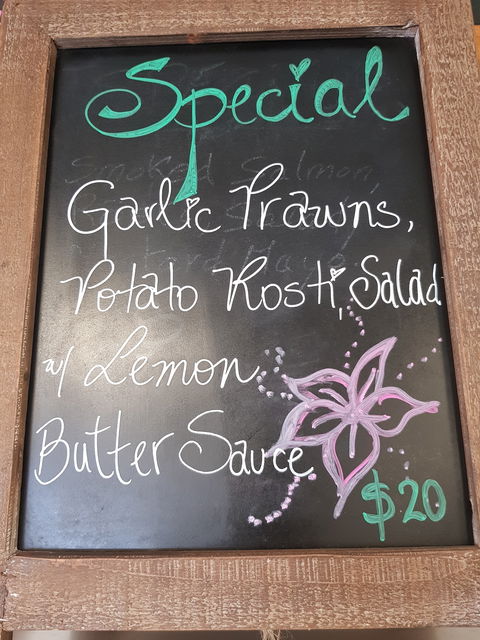 Special
Smoked Salmon,
Garlic Prawns,
Potato Rosti, Salad
w/ Lemon
Butter Sauce
$20